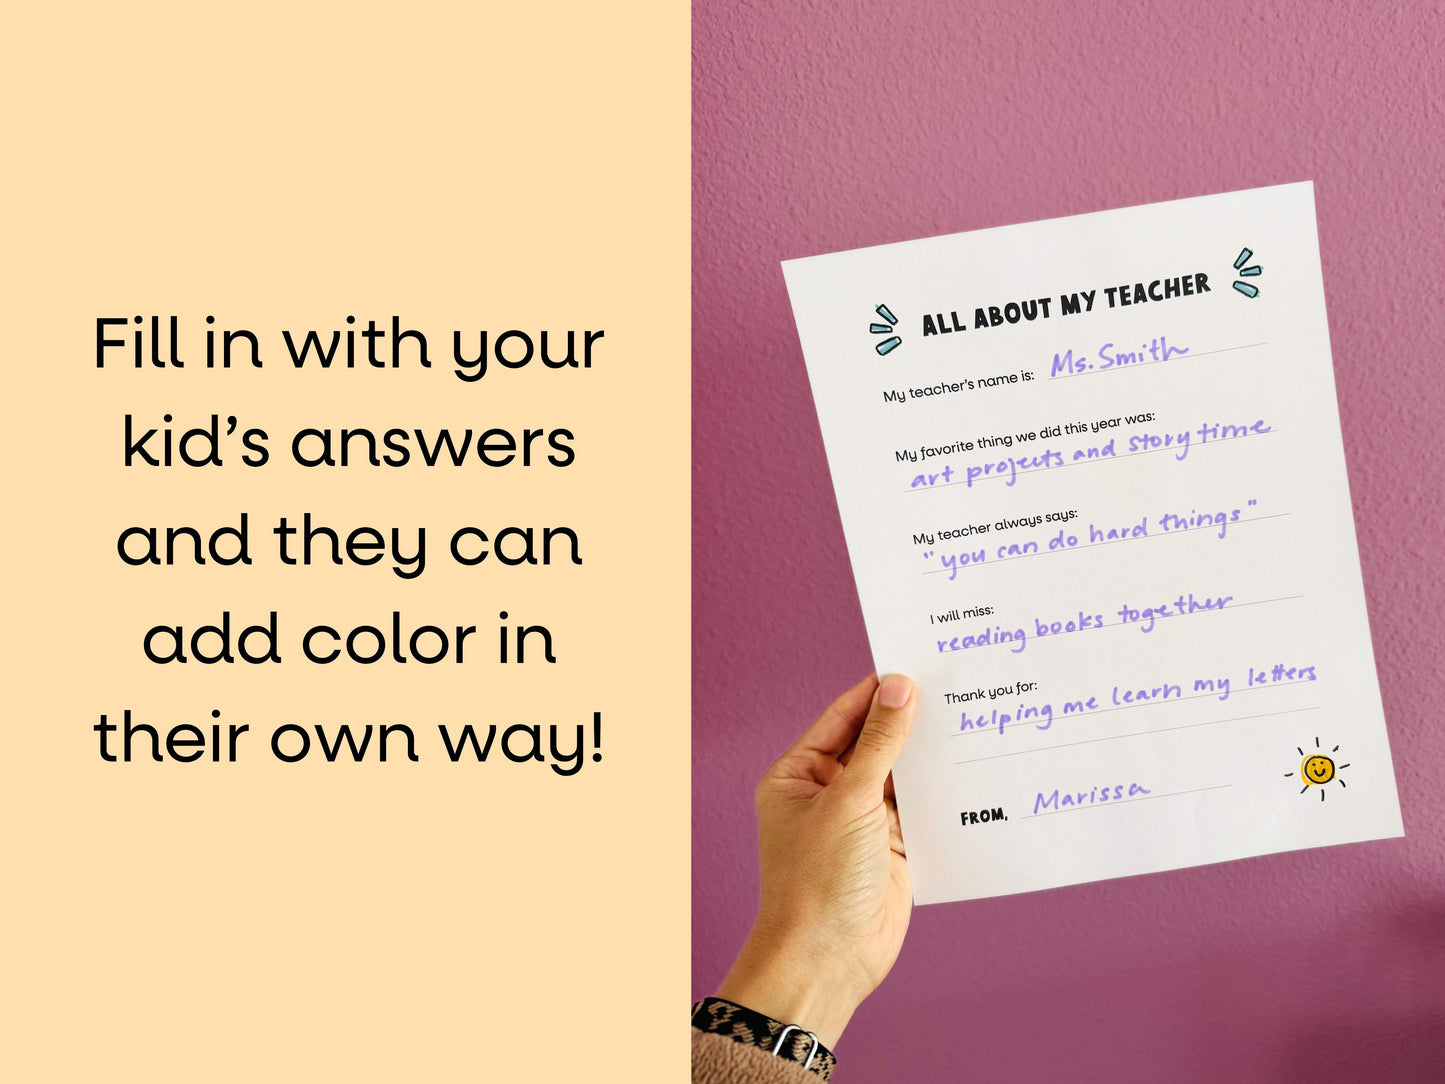 Fill in with your
kid's answers
and they can
add color in
their own way!
ALL ABOUT MY TEACHER
My teacher's name is: Ms. Smith
My favorite thing we did this year was:
art projects and story time
My teacher always says:
"you can do hard things"
I will miss:
reading books together
Thank you for:
helping me learn my letters
FROM, Marissa